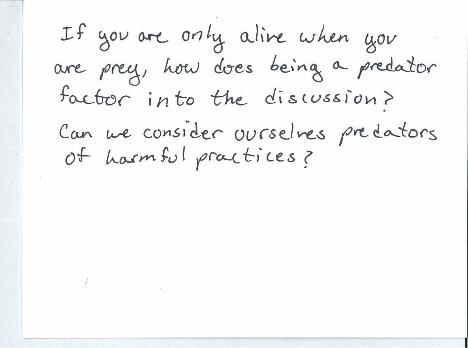 If you are only alive when you
are prey, how does being a predator
factor into the discussion?
Can we consider ourselves predators
of harmful practices?